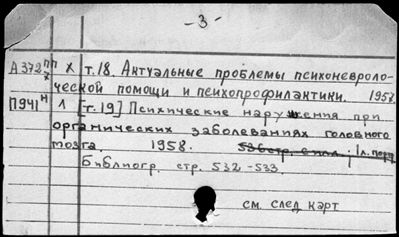 - 3 -
А372 пп х Х т.18. Актуальные проблемы психоневроло-
ческой помощи и психопрофилактики. 1958.
П941 н Л [т.19] Психические нарушения при
органических заболеваниях головного
мозга. 1958. 536 стр. с илл.; 1 л. порт
Библиогр. стр. 532-533.
см. след карт